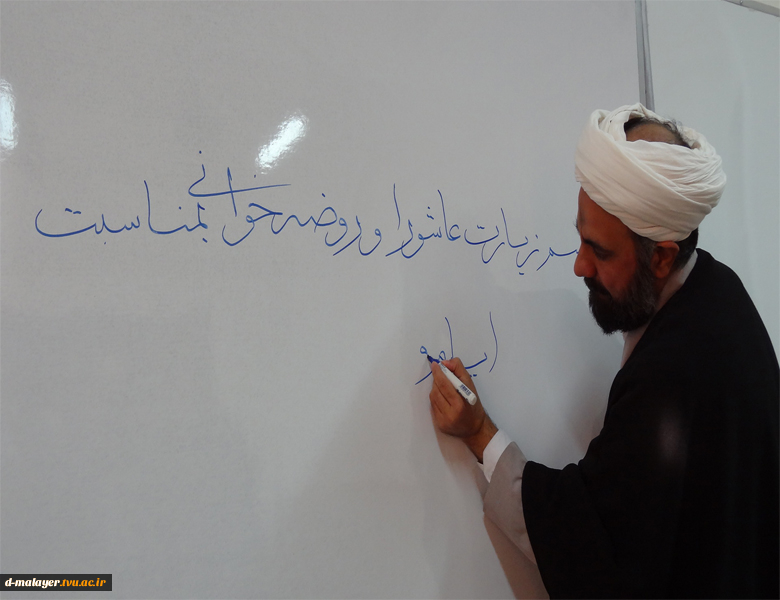 زیارت عاشورا و روضه خوانی بمناسبت
d-malayer.tvu.ac.ir